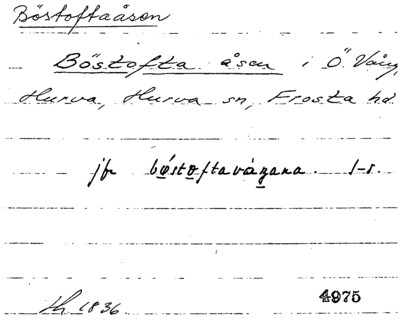 Böstoftaåsen
Böstofta åsen i Ö. Vång,
Hurva, Hurva sn, Frosta hd.
jfr bǿstoftavágana. 1-s.
4975
lh. 1836